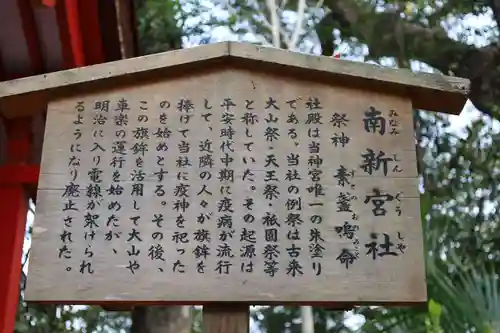 南新宮社
みなみしんぐうしゃ
祭神　素盞嗚命
すさのおのみこと
社殿は当神宮唯一の朱塗り
である。当社の例祭は古来
大山祭・天王祭・祇園祭等
と称していた。その起源は
平安時代中期に疫病が流行
して、近隣の人々が旗鉾を
捧げて当社に疫神を祀った
のを始めとする。その後、
この旗鉾を活用して大山や
車楽の運行を始めたが、
明治に入り電線が架けられ
るようになり廃止された。